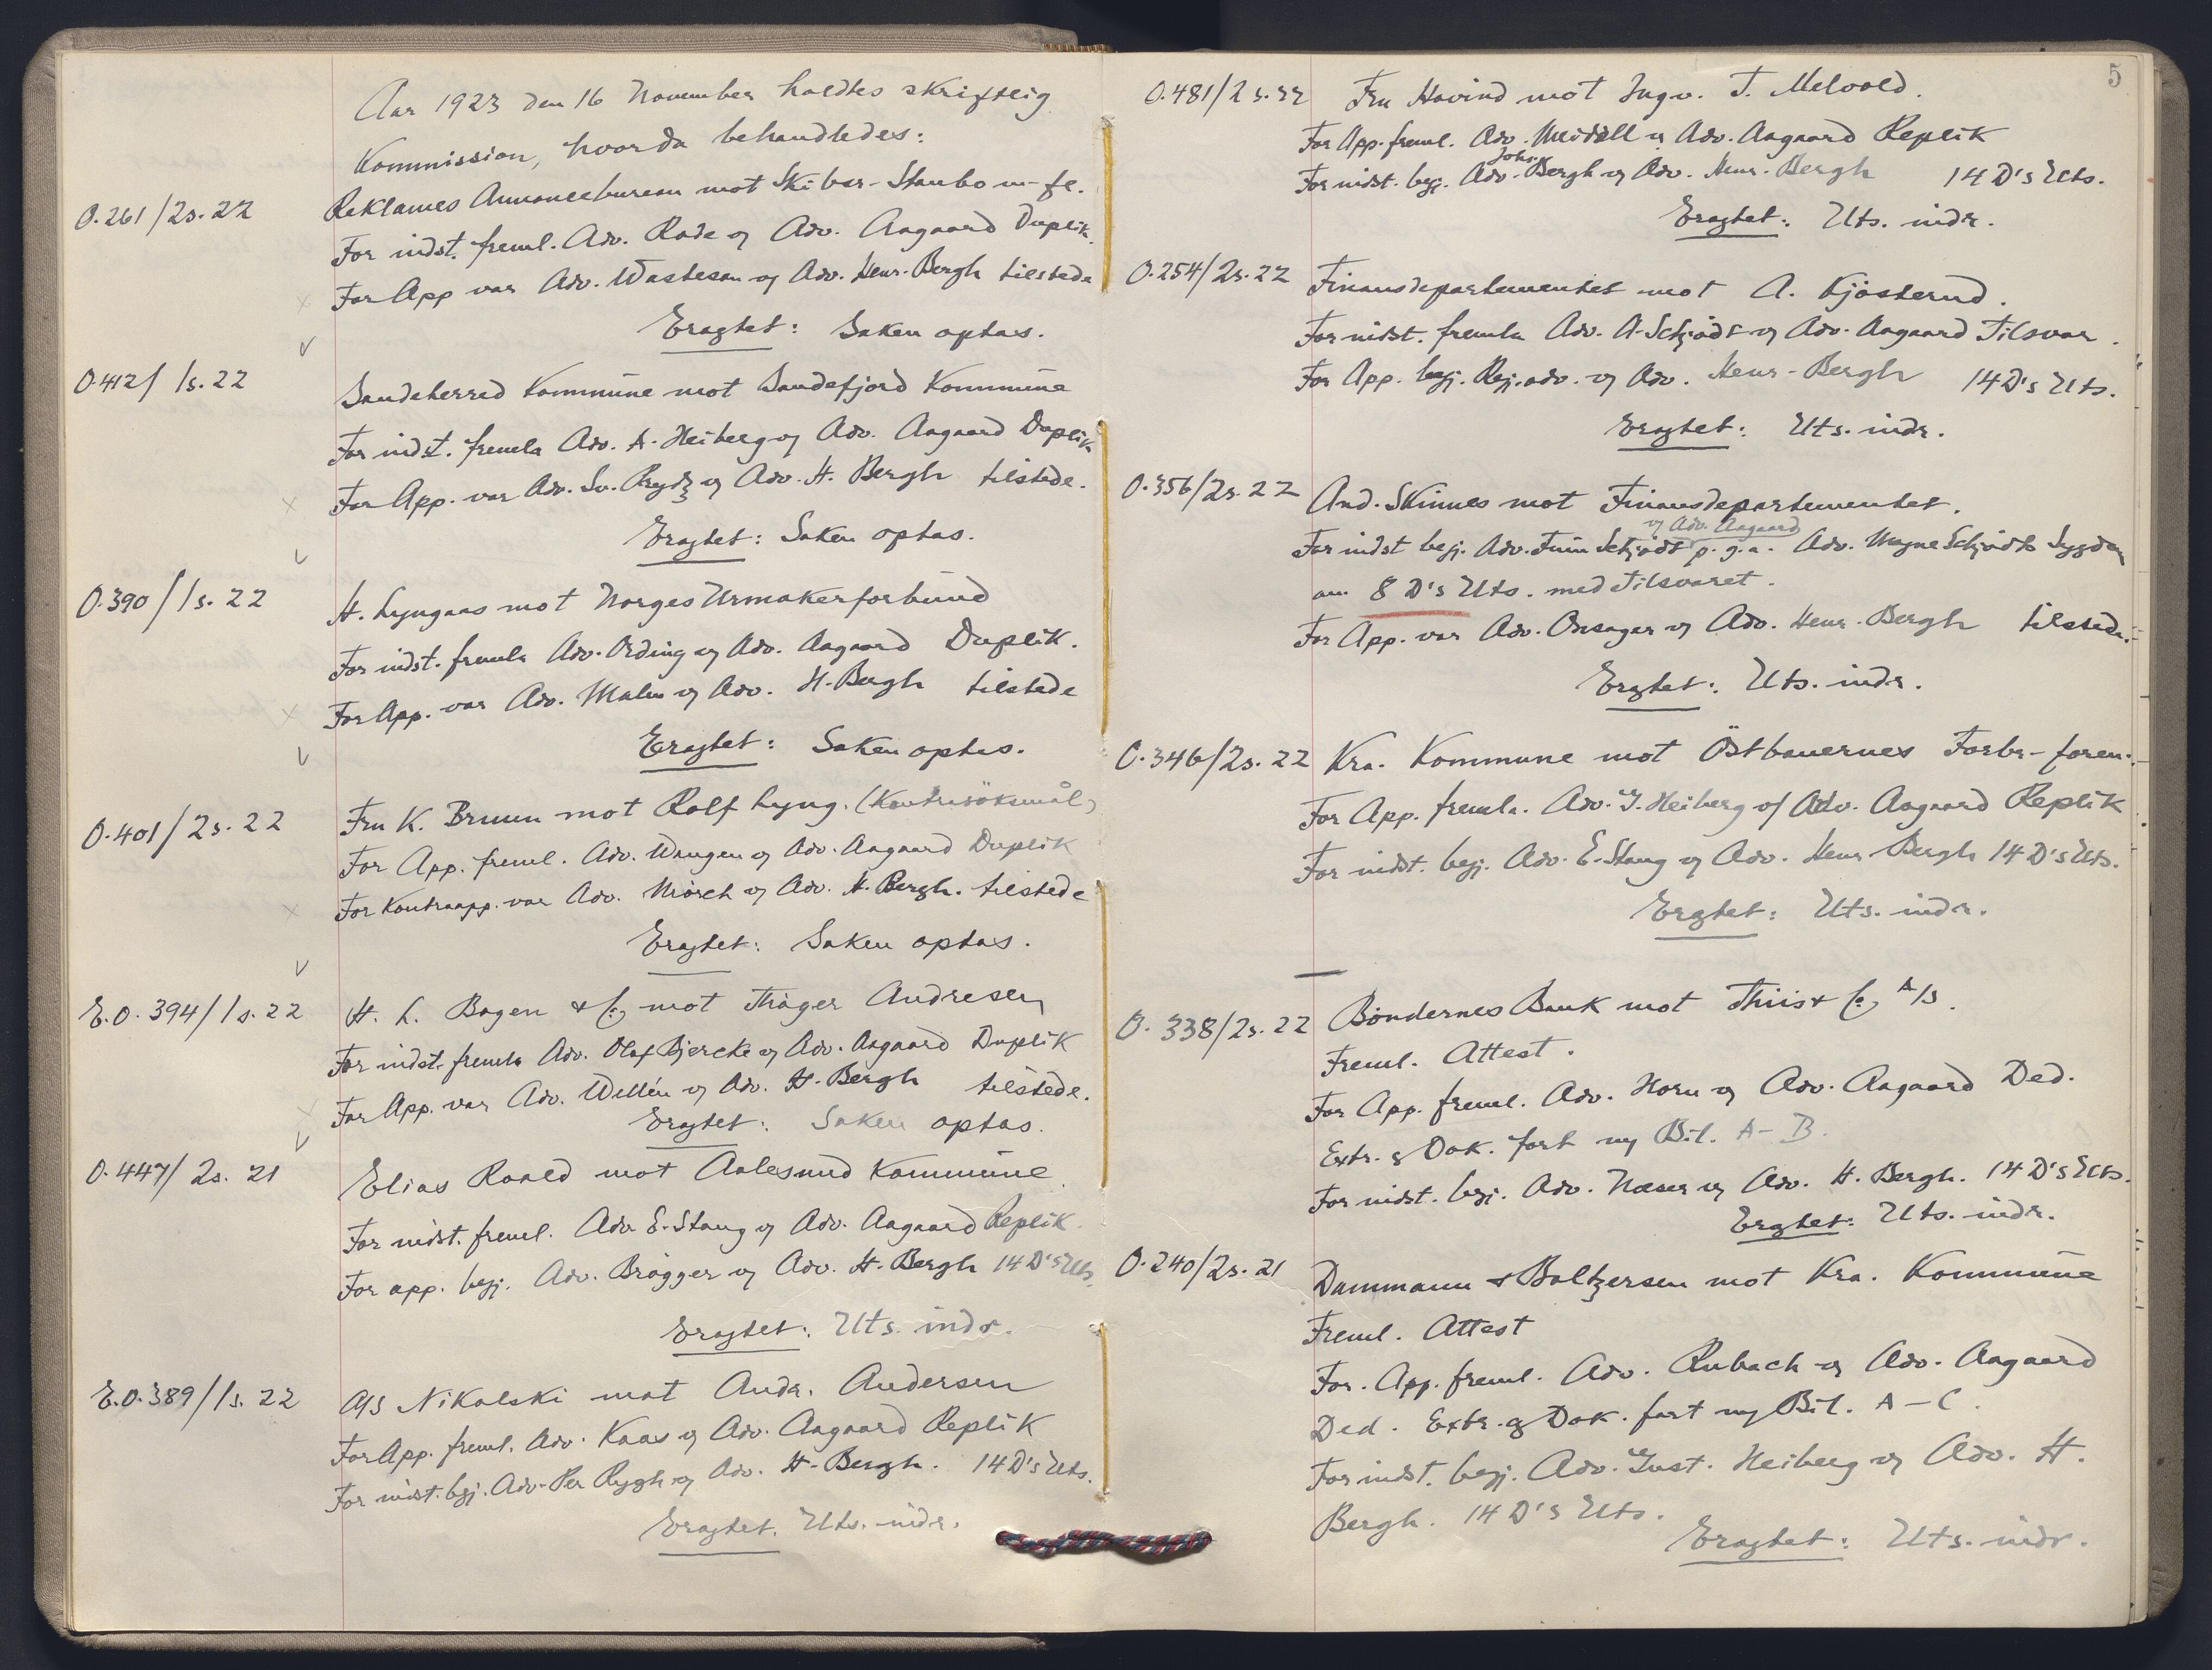 Aar 1923 den 16 November holdtes skriftlig
Kommission, hvorda behandledes:
O.261/2s.22 Reklames Annoncebureau mot Skibsr. Staubo m-fl.
For indst. freml. Adv. Rode og Adv. Aagaard Duplik.
For App var Adv. Wastesan og Adv. Henr. Bergh tilstede
Eragtet: Saken optas.
O.412/1s.22 Sandeherred Kommune mot Sandefjord Kommune
For indst. fremla Adv. A. Heiberg og Adv. Aagaard Duplik
For App. var Adv. Sv. Brydz og Adv. H. Bergh tilstede.
Eragtet: Saken optas.
O.390/1s.22 H. Lyngaas mot Norges Urmakerforbund
For indst. fremla Adv. Ording og Adv. Aagaard Duplik.
For App. var Adv. Malm og Adv. H. Bergh tilstede
Eragtet: Saken optas.
O.401/2s.22 Fru K. Bruun mot Rolf Lyng. (Kontrasöksmål)
For App. freml. Adv. Wangen og Adv. Aagaard Duplik
For Kontraapp. var Adv. Mörch og Adv. H. Bergh. tilstede
Eragtet: Saken optas.
E.O.394/1s.22 H. L. Bogen & Co mot Thråger Andresen
For indst. fremla Adv. Olaf Bjercke og Adv. Aagaard Duplik
For App. var Adv. Wellén og Adv. H. Bergh tilstede.
Eragtet: Saken optas.
O.447/2s.21 Elias Roald mot Aalesund Kommune.
For indst. freml. Adv E. Stang og Adv. Aagaard Replik.
For app. begj. Adv. Brögger og Adv. H. Bergh 14 D's Uts.
Eragtet: Uts. indr.
E.O.389/1s.22 A/S Nikolski mot Andr. Andersen
For App. freml. Adv. Kaas og Adv. Aagaard Replik
For indst. begj. Adv. Per Rygh og Adv. H. Bergh. 14 D's Uts.
Eragtet. Uts. indr.
5
O.481/2s.22 Fru Hovind mot Ingv. T. Melvold.
For App. freml. Adv. Meidell og Adv. Aagaard Replik
For indst. begj. Adv. Johs. Bergh og Adv. Henr. Bergh 14 D's Uts.
Eragtet: Uts. indr.
O.254/2s.22 Finansdepartementet mot A. Kjösterud.
For indst. fremla Adv. A. Schjödt og Adv. Aagaard Tilsvar.
For App. begj. Rej.adv. og Adv. Henr. Bergh 14 D's Uts.
Eragtet: Uts. indr.
O.356/2s.22 And. Skinnes mot Finansdepartementet.
og Adv. Aagaard
For indst begj. Adv. Finn Schjödt p.g.a. Adv. Magne Schjödts Sygdom
om 8 D's Uts. med Tilsvaret.
For App. var Adv. Onsager og Adv. Henr. Bergh tilstede.
Eragtet: Uts. indr.
O.346/2s.22 Kra. Kommune mot Östbanernes Forbr-foren.
For App. fremla. Adv. J. Heiberg og Adv. Aagaard Replik
For indst. begj. Adv. E. Stang og Adv. Henr Bergh 14 D's Uts.
Eragtet: Uts. indr.
O.338/2s.22 Böndernes Bank mot Thiis & Co A/S.
Freml. Attest.
For App. freml. Adv. Horn og Adv. Aagaard Ded.
Extr. & Dok. fort ny Bil. A-B.
For indst. begj. Adv. Næser og Adv. H. Bergh. 14 D's Uts.
Eragtet: Uts. indr.
O.240/2s.21 Dammann & Boltzersen mot Kra. Kommune
Freml. Attest
For. App. freml. Adv. Rubach og Adv. Aagaard
Ded. Extr. & Dok. fort ny Bil. A-C.
For indst. begj. Adv. Just. Heiberg og Adv. H.
Bergh. 14 D's Uts.
Eragtet: Uts. indr.